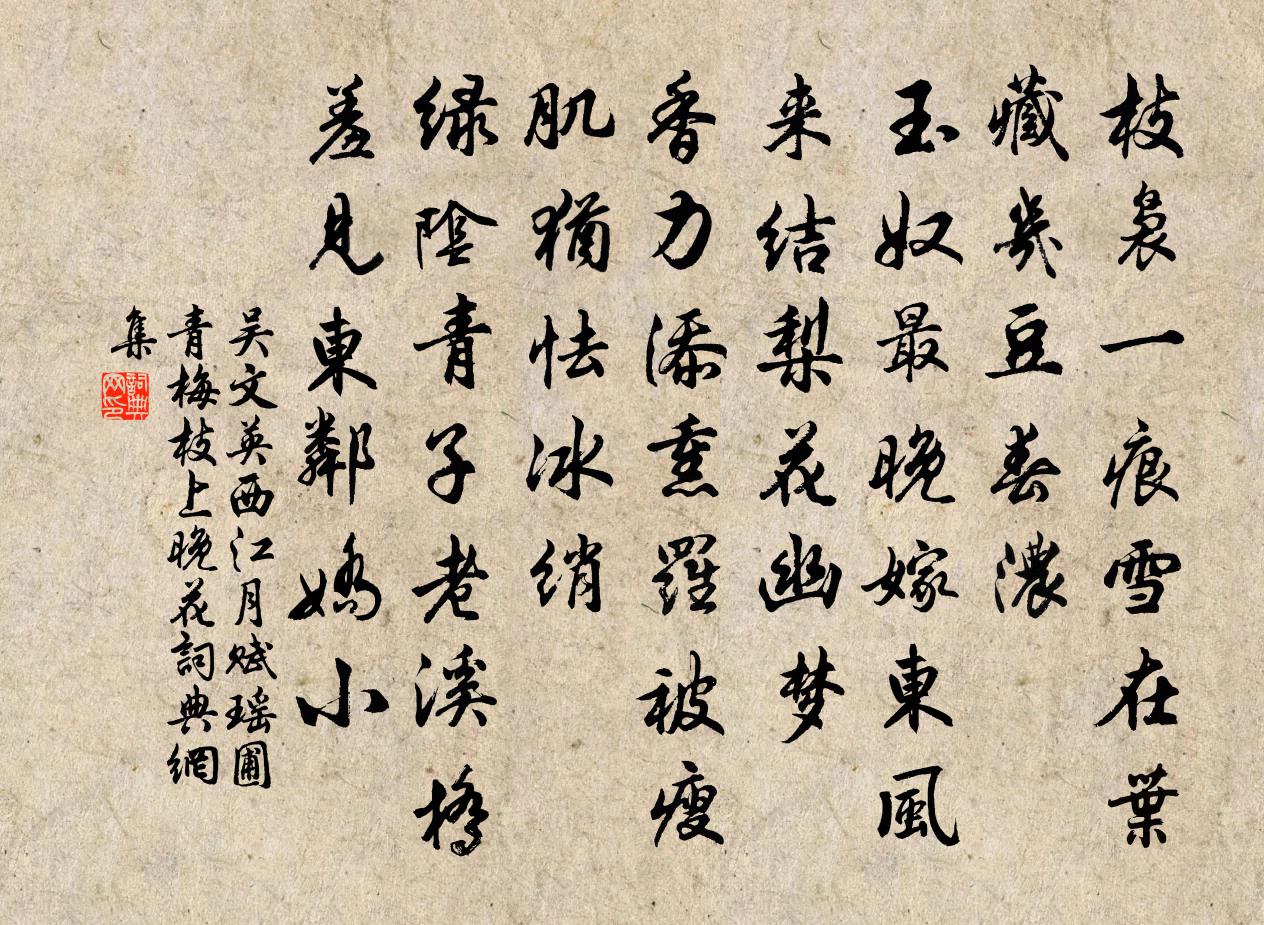 枝裊一痕雪在葉
藏幾豆春濃
玉奴最晚嫁東風
来结梨花幽梦
香力添熏羅被瘦
肌猶怯冰绡
緑陰青子老溪橋
羞見東鄰嬌小
吴文英西江月赋瑶圃
青梅枝上晚花詞典網
集
詞典
网印